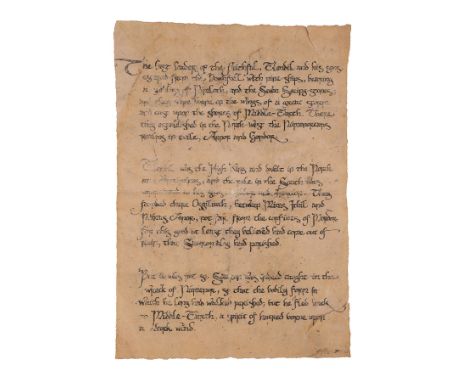 The last leaders of the Faithful, Elendil and his sons,
escaped from the Downfall with nine ships, bearing
a of Nimloth, and the Seven Seeing-stones;
and they were borne on the wings of a great storm
and cast upon the shores of Middle-Earth. There
they established in the North-west the Númenorean
realms in exile, Arnor and Gondor.
Elendil was the High King and dwelt in the North
and the rule in the South was
to his sons They
founded there Osgiliath, between Minas Ithil and
Minas Anor, not far from the confines of Mordor.
For this good at least they believed had come out of
ruin, that Sauron had perished.
But it was not so. Sauron was caught in the
wreck of Númenor, so that the bodily form in
which he long had walked perished; but he fled back
to Middle-Earth, a spirit of hatred borne upon
a dark wind.